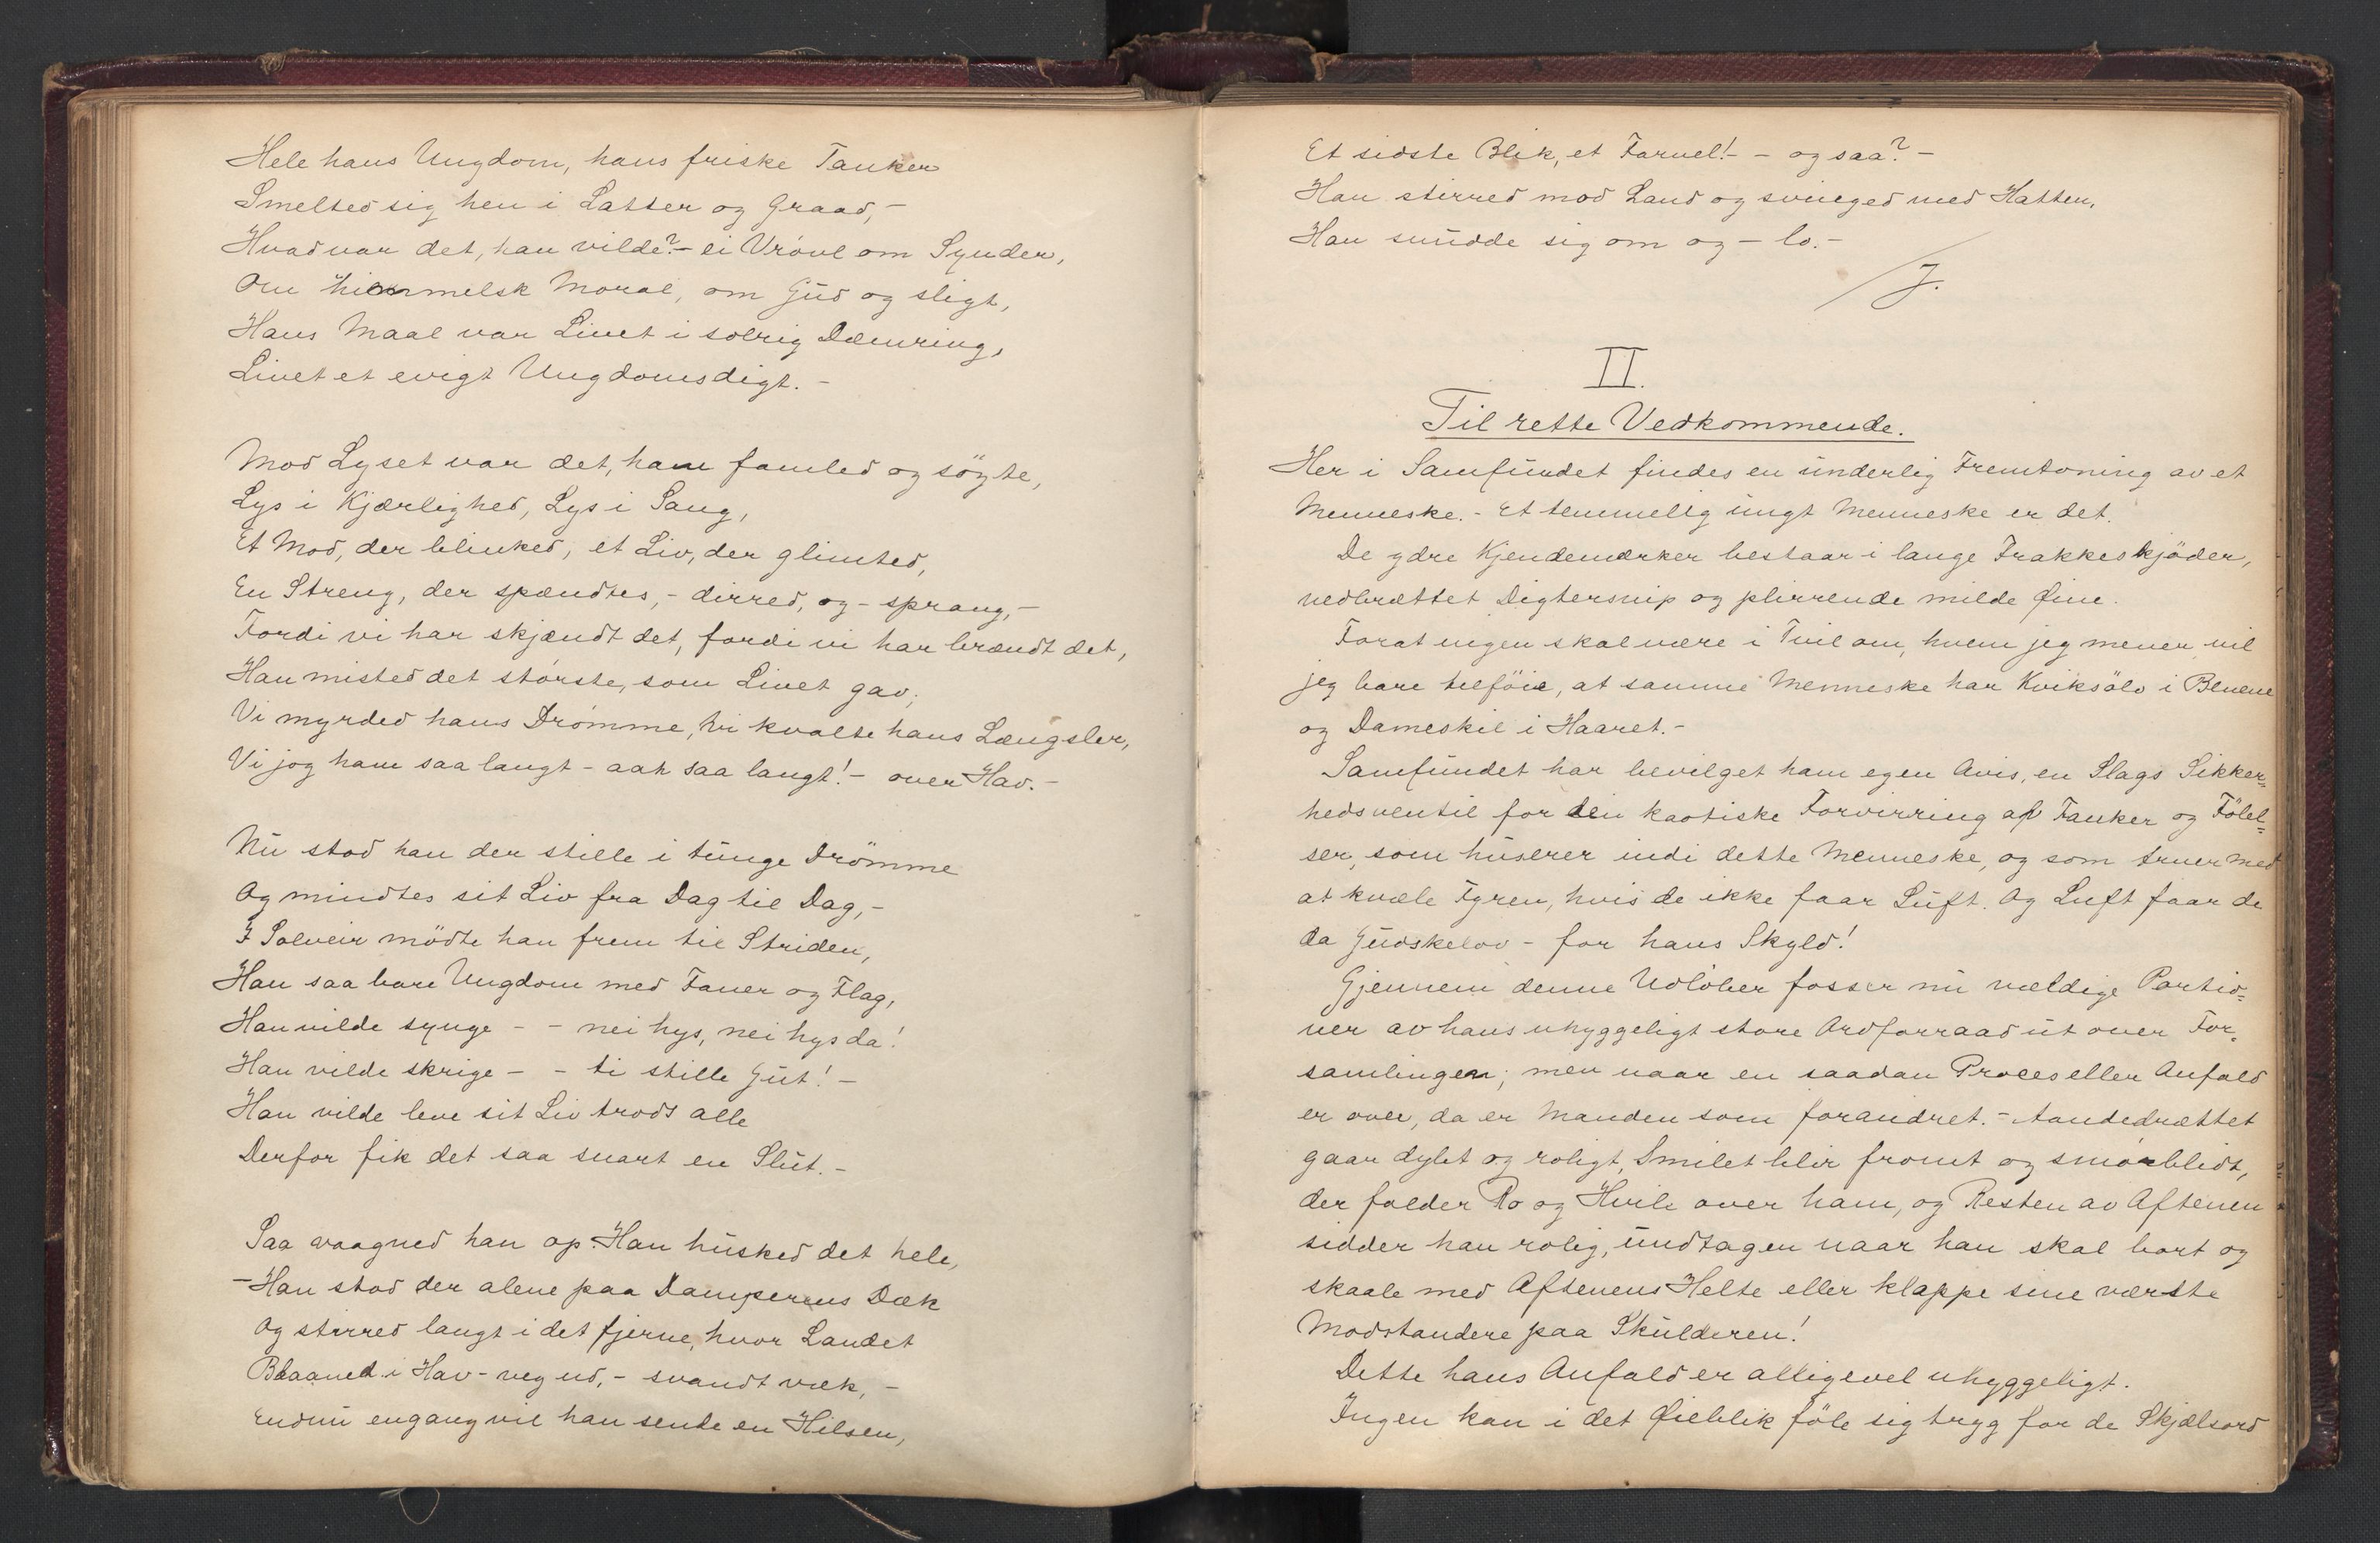 Hele hans Ungdom, hans friske Tanker
Smelted sig hen i Latter og Graad, –
Hvad var det, han vilde? – ei Vrövl om Synder,
Om himmelsk Moral, om Gud og sligt,
Hans Maal var Livet i solrig Dæmring,
Livet et evigt Ungdomsdigt. –
Mod Lyset var det, han famled og sögte,
Lys i Kjærlighed, Lys i Sang,
Et Mod, der blinked, et Liv, der glimted,
En Streng, der spændtes, – dirred, og – sprang, –
Fordi vi har skjændt det, fordi vi har brændt det,
Han misted det störste, som Livet gav;
Vi myrded hans Drömme, vi kvalte hans Længsler,
Vi jog ham saa langt – aah saa langt! – over Hav. –
Nu stod han der stille i tunge Drömme
Og mindtes sit Liv fra Dag til Dag, –
I Solveir mödte han frem til Striden,
Han saa bare Ungdom med Faner og Flag,
Han vilde synge – – nei hys, nei hys da!
Han vilde skrige – – ti stille Gut! –
Han vilde leve sit Liv trods alle
Derfor fik det saa snart en Slut. –
Saa vaagned han op. Han husked det hele,
– Han stod der alene paa Damperens Dæk
Og stirred langt i det fjerne, hvor Landet
Blaaned i Hav – veg ud, – svandt væk, –
Endnu engang vil han sende en Hilsen,
Et sidste Blik, et Farvel! – – og saa? –
Han stirred mod Land og svinged med Hatten,
Han snudde sig om og – lo. –
J.
II.
Til rette Vedkommende.
Her i Samfundet findes en underlig Fremtoning av et
Menneske. – Et temmelig ungt Menneske er det.
De ydre Kjendemærker bestaar i lange Frakkeskjöder,
nedbrættet Digtersnip og plirrende milde Øine.
Forat ingen skal være i Tvil om, hvem jeg mener vil
jeg bare tilföie, at samme Menneske har Kviksölv i Benene
og Dameskil i Haaret. –
Samfundet har bevilget ham egen Avis, en Slags Sikker-
hedsventil for den kaotiske Forvirring af Tanker og Fölel-
ser, som huserer indi dette Menneske, og som truer med
at kvæle Fyren, hvis de ikke faar Luft. Og Luft faar de
da Gudskelov – for hans Skyld!
Gjennem denne Udlöber fosser nu vældige Portio-
ner av hans uhyggeligt store Ordforraad ut over For-
samlingen; men naar en saadan Proces eller Anfald
er over, da er Manden som forandret. – Aandedrættet
gaar dybt og roligt, Smilet blir fromt og smörblidt,
der falder Ro og Hvile over ham, og Resten av Aftenen
sidder han rolig, undtagen naar han skal bort og
skaale med Aftenens Helte eller klappe sine værste
Modstandere paa Skulderen!
Dette hans Anfald er alligevel uhyggeligt.
Ingen kan i det Øieblik föle sig tryg for de Skjælsord